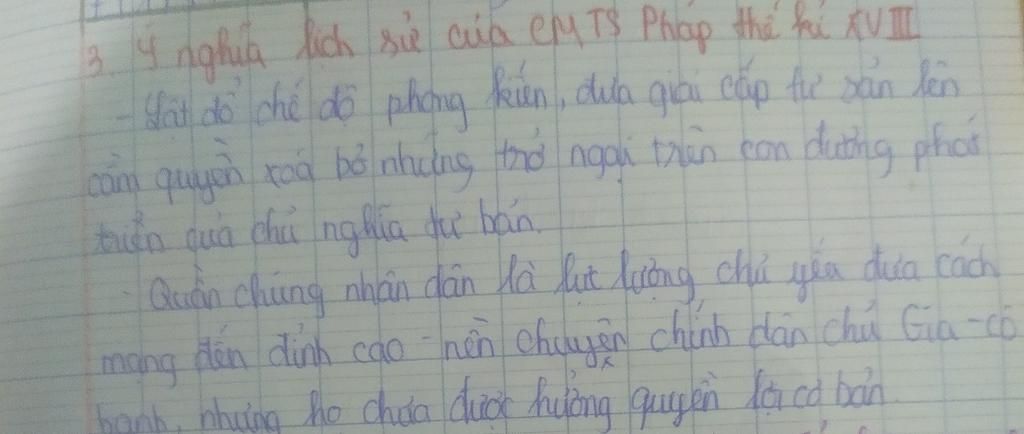 3. Ý nghĩa lịch sử của CMTS Pháp thế kỉ XVIII
- Lật đổ chế độ phong kiến, đưa giai cấp tư sản lên
cầm quyền xoá bỏ những trở ngại trên con đường phát
triển của chủ nghĩa tư bản.
- Quần chúng nhân dân là lực lượng chủ yếu đưa cách
mạng đến đỉnh cao - nền chuyên chính dân chủ Gia-cô
banh, nhưng họ chưa được hưởng quyền lợi cơ bản.